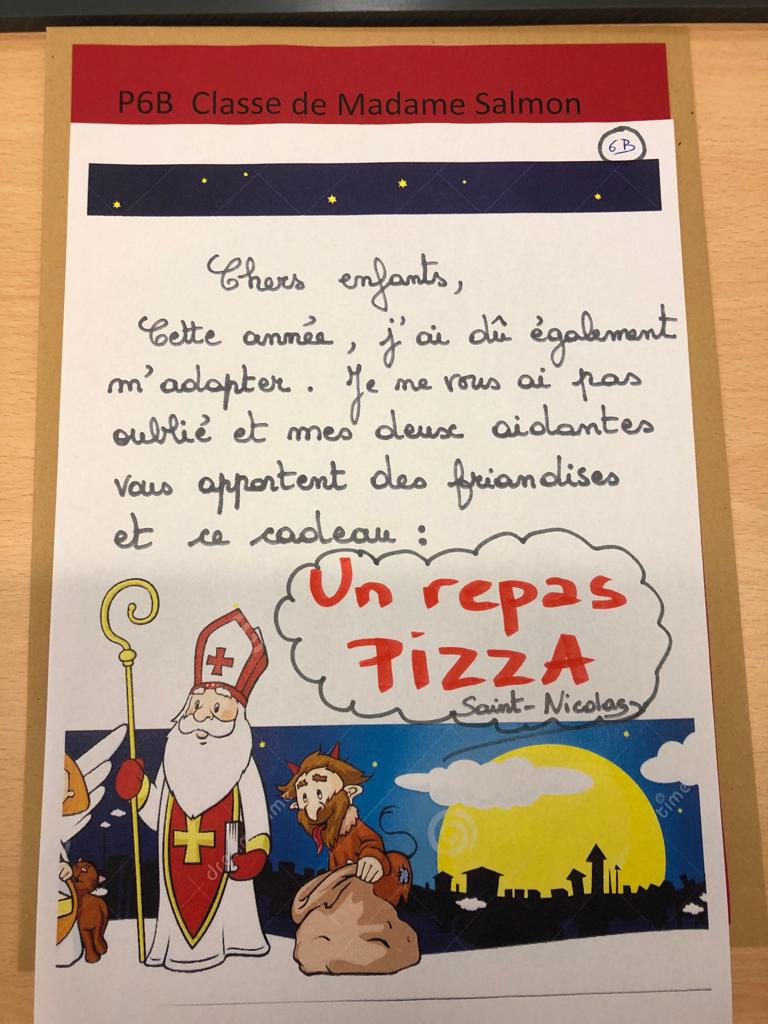 P6B Classe de Madame Salmon
6B
Chers enfants,
Cette année, j'ai dû également
m'adapter. Je ne vous ai pas
oublié et mes deux aidantes
vous apportent des friandises
et ce cadeau :
Un repas
PizzA
Saint-Nicolas